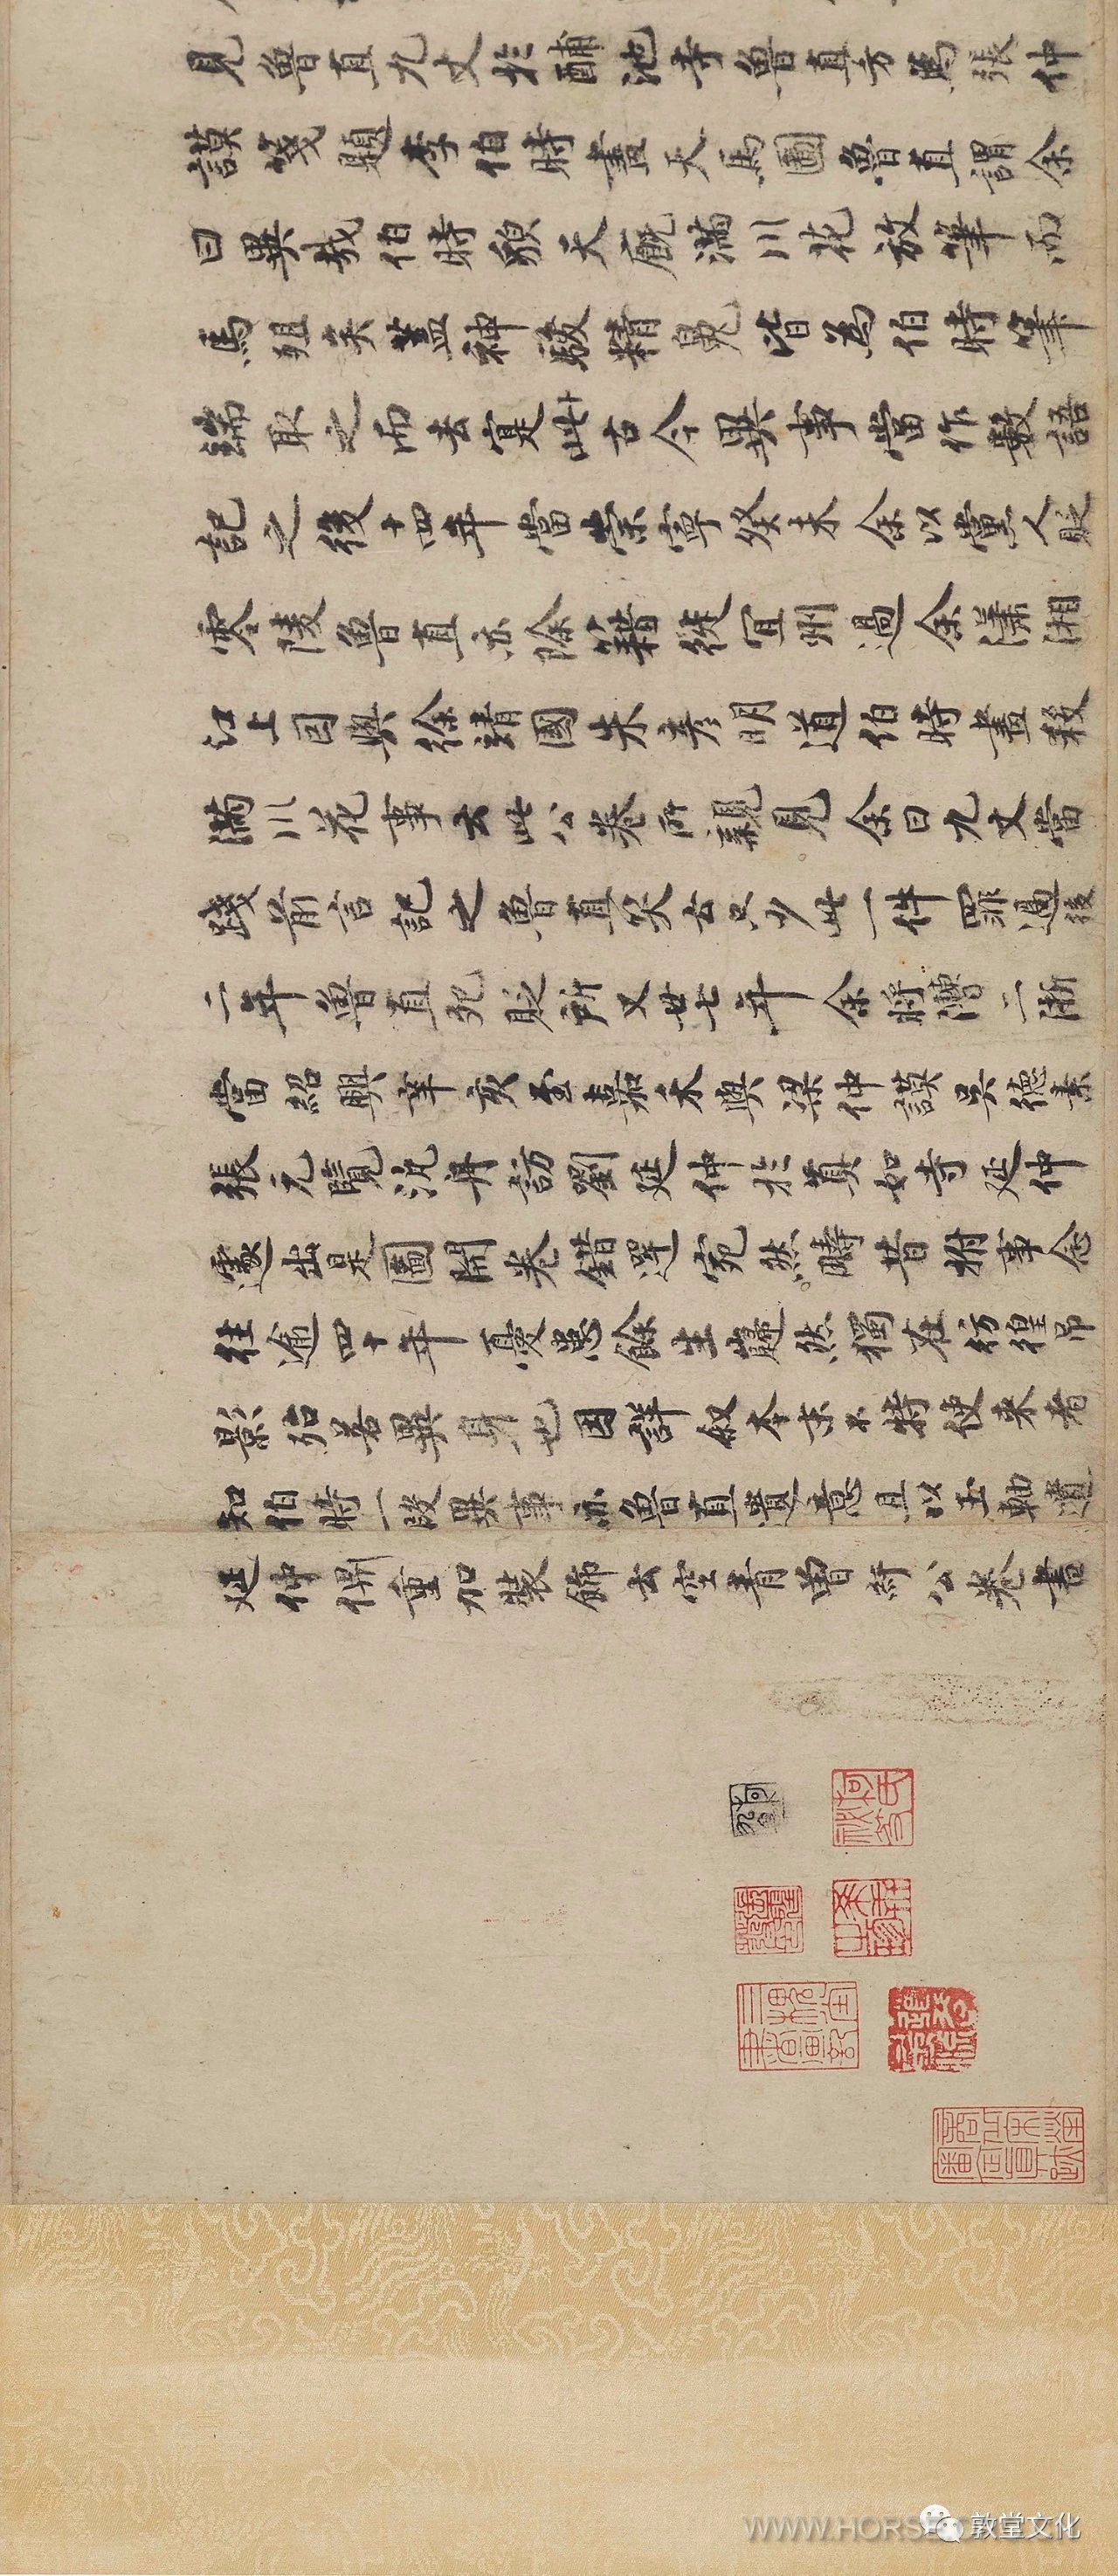 見魯直九丈於酺池寺魯直方為張仲
謨箋題李伯時畫天馬圖魯直謂余
曰異哉伯時貌天厩滿川花放筆而
馬殂矣蓋神駿精魄皆為伯時筆
端取之而去寔古今異事當作數語
記之後十四年當崇寧癸未余以黨人貶
零陵魯直亦除籍徙宜州過余瀟湘
江上因與徐靖國朱彦明道伯時畫殺
滿川花事云此公卷所親見余曰九丈當
踐前言記之魯直笑云只少此一件罪過後
二年魯直死貶所又廿七年余將漕二浙
當紹興辛亥至嘉禾與梁仲謨吳德素
張元覽泛舟訪劉延仲於真如寺延仲
遽出是圖開卷錯愕宛然疇昔拊事念
往逾四十年憂患餘生巋然獨在彷徨弔
影殆若異身也因詳叙本末不特使來者
知伯時一段異事亦魯直遺意且以玉軸遺
延仲俾重加裝飾云空青曾紆公卷書
WWW.HORSE
敦堂文化